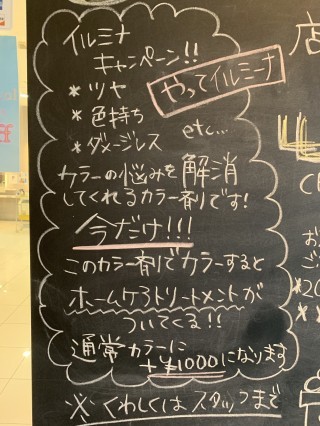 イルミナ
キャンペーン!!
やってイルミーナ
* ツヤ
* 色持ち
* ダメージレス etc...
カラーの悩みを解消
してくれるカラー剤です!
今だけ!!!
このカラー剤でカラーすると
ホームケアトリートメントが
ついてくる!!
通常カラーに
+¥1000になります
※くわしくはスタッフまで
店